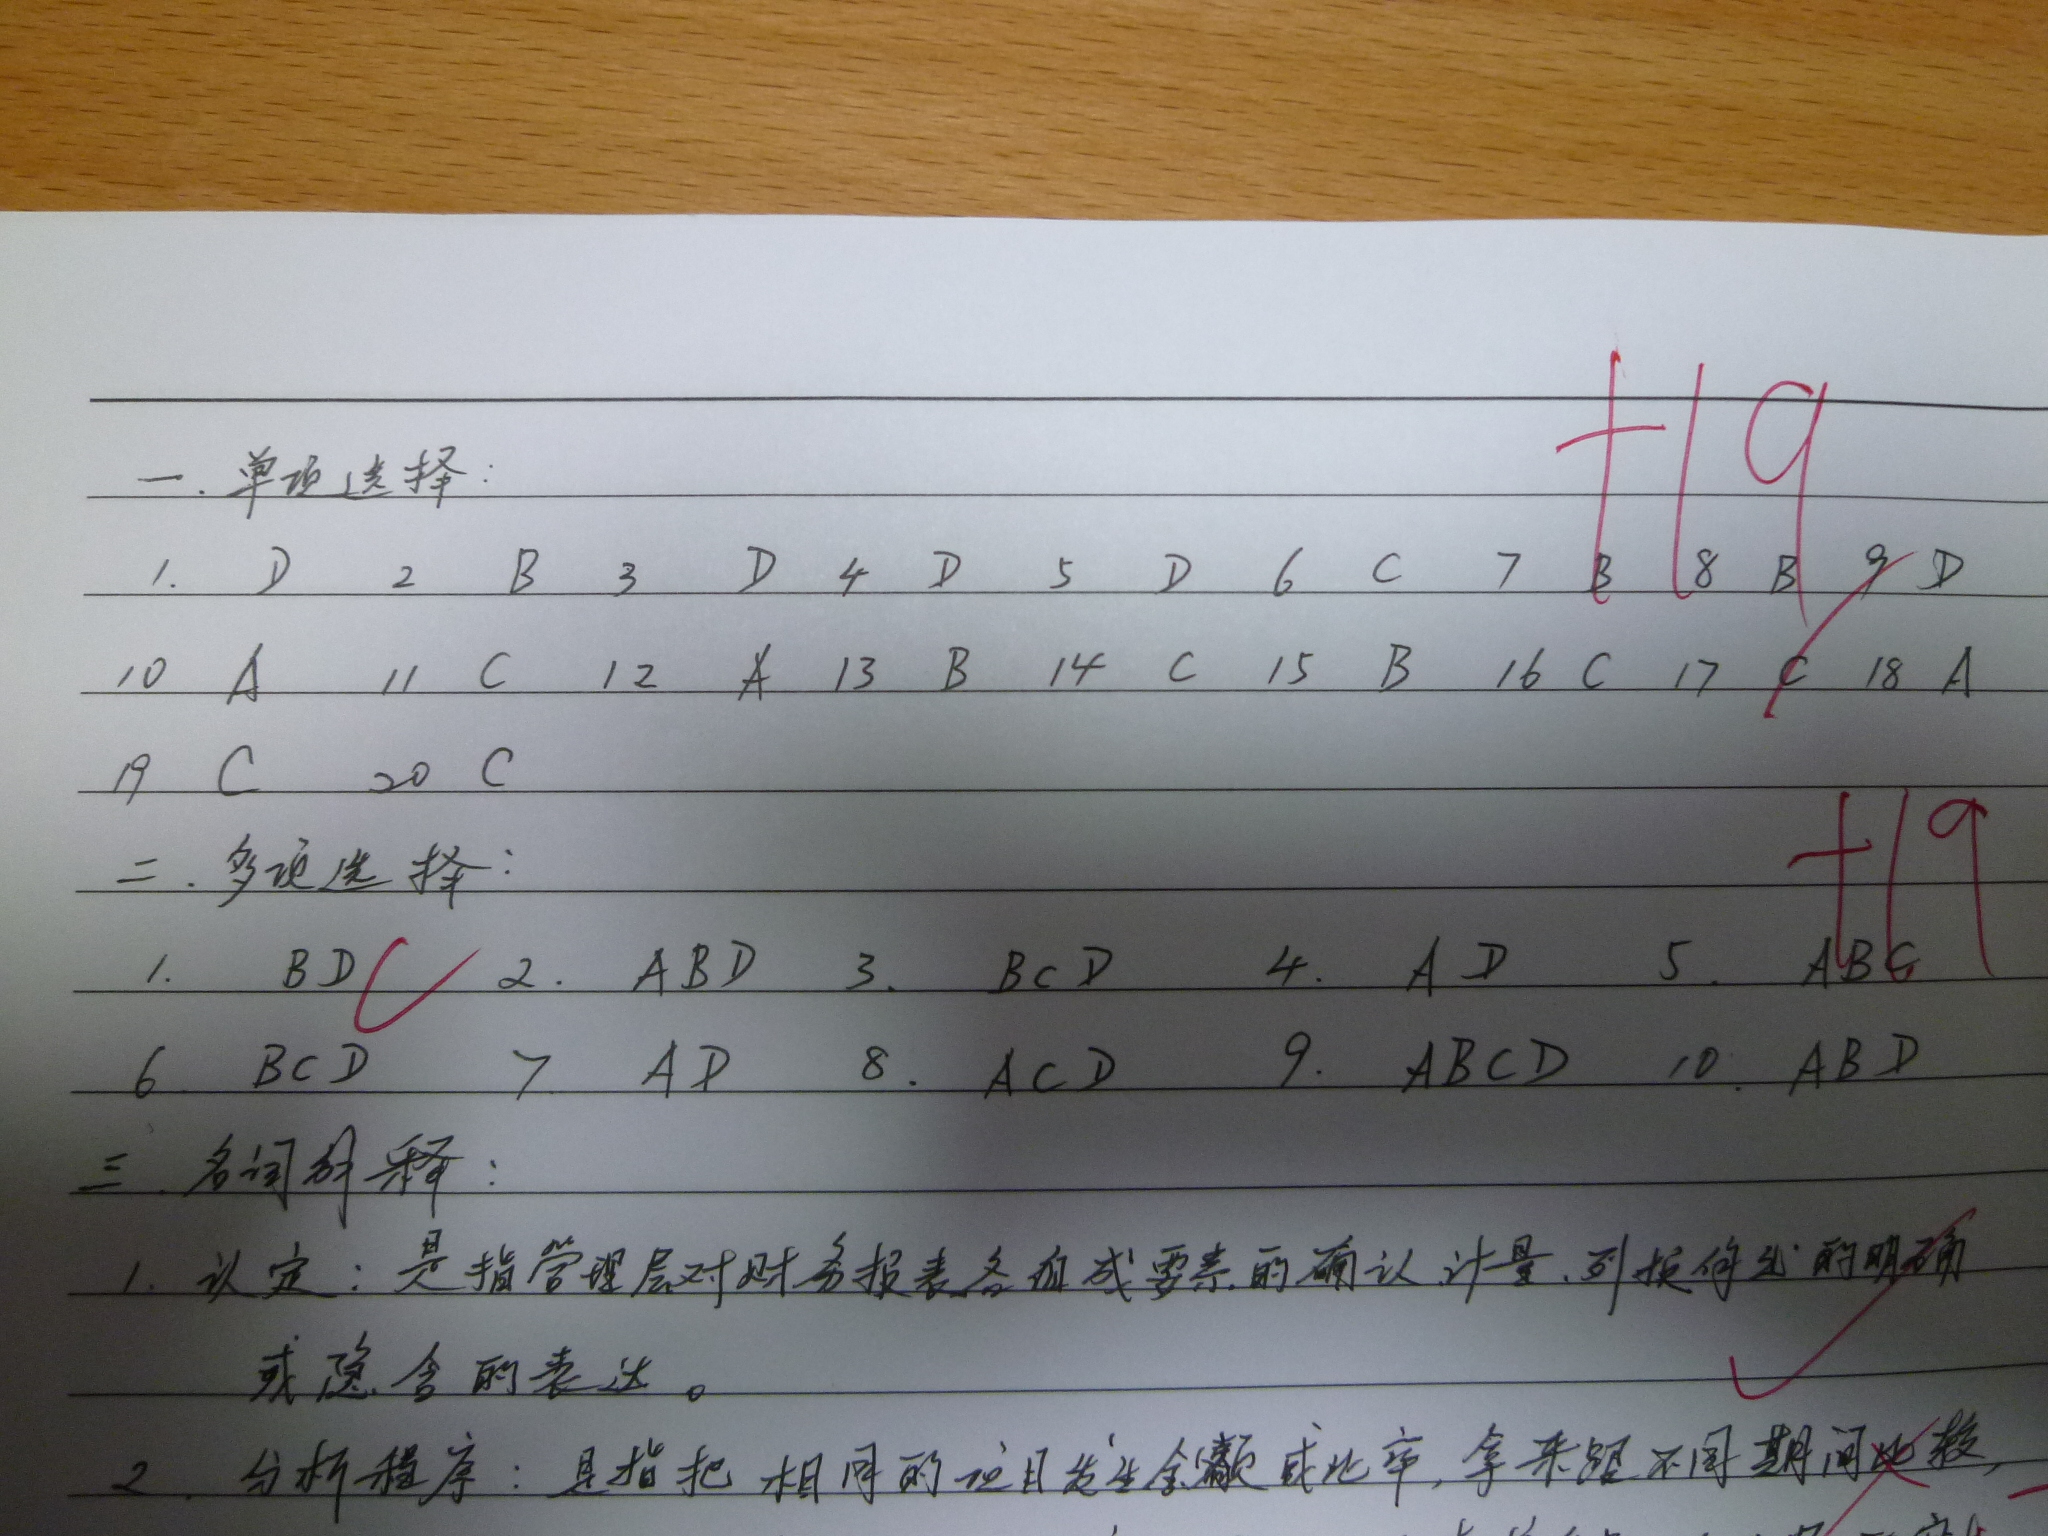 一.单项选择:
1. D 2. B 3 D 4 D 5 D 6 C 7 B 8 B 9 D
+19
10 A 11 C 12 A 13 B 14 C 15 B 16 C 17 C 18 A
19 C 20 C
二.多项选择:
+19
1. BD 2. ABD 3. BCD 4. AD 5. ABC
6 BCD 7 AD 8. ACD 9. ABCD 10. ABD
三.名词解释:
1. 认定:是指管理层对财务报表各组成要素的确认.计量.列报作出的明确
或隐含的表达。
2. 分析程序:是指把相同的项目发生金额或比率,拿来跟不同期间比较,